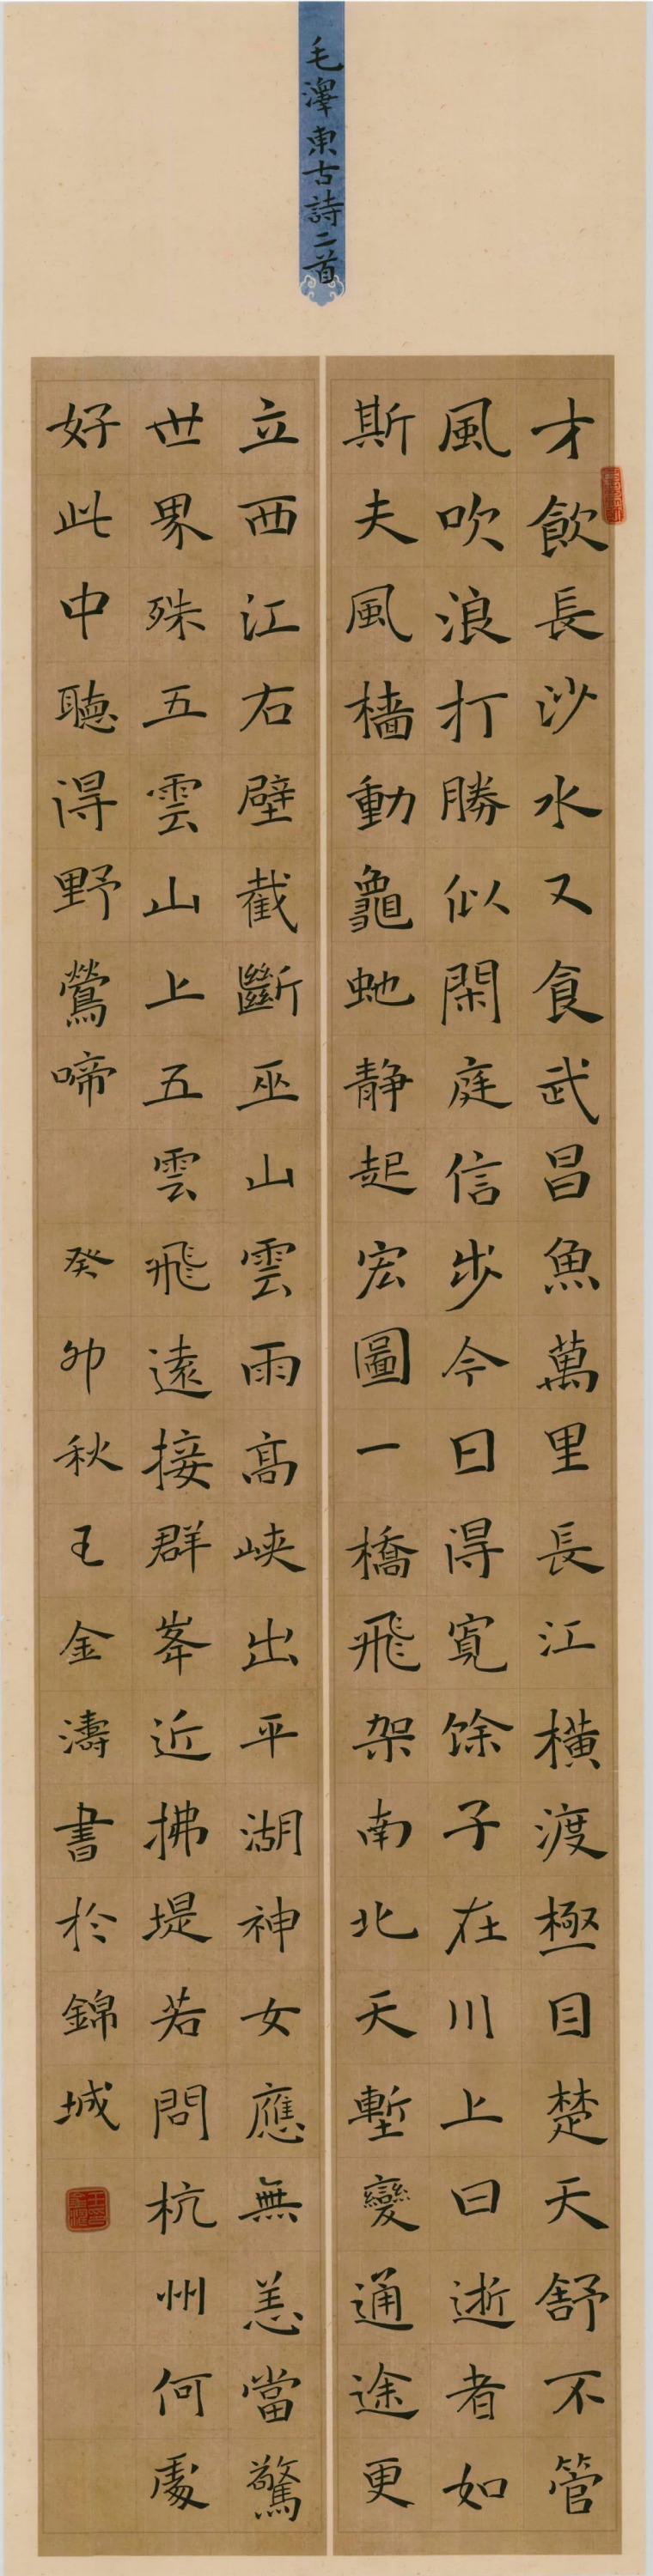 毛澤東古詩二首
才飲長沙水又食武昌魚萬里長江橫渡極目楚天舒不管
風吹浪打勝似閑庭信步今日得寬馀子在川上曰逝者如
斯夫風檣動龜虵靜起宏圖一橋飛架南北天塹變通途更
立西江右壁截斷巫山雲雨高峽出平湖神女應無恙當驚
世界殊五雲山上五雲飛遠接群峯近拂堤若問杭州何處
好此中聽得野鶯啼 癸卯秋王金濤書於錦城